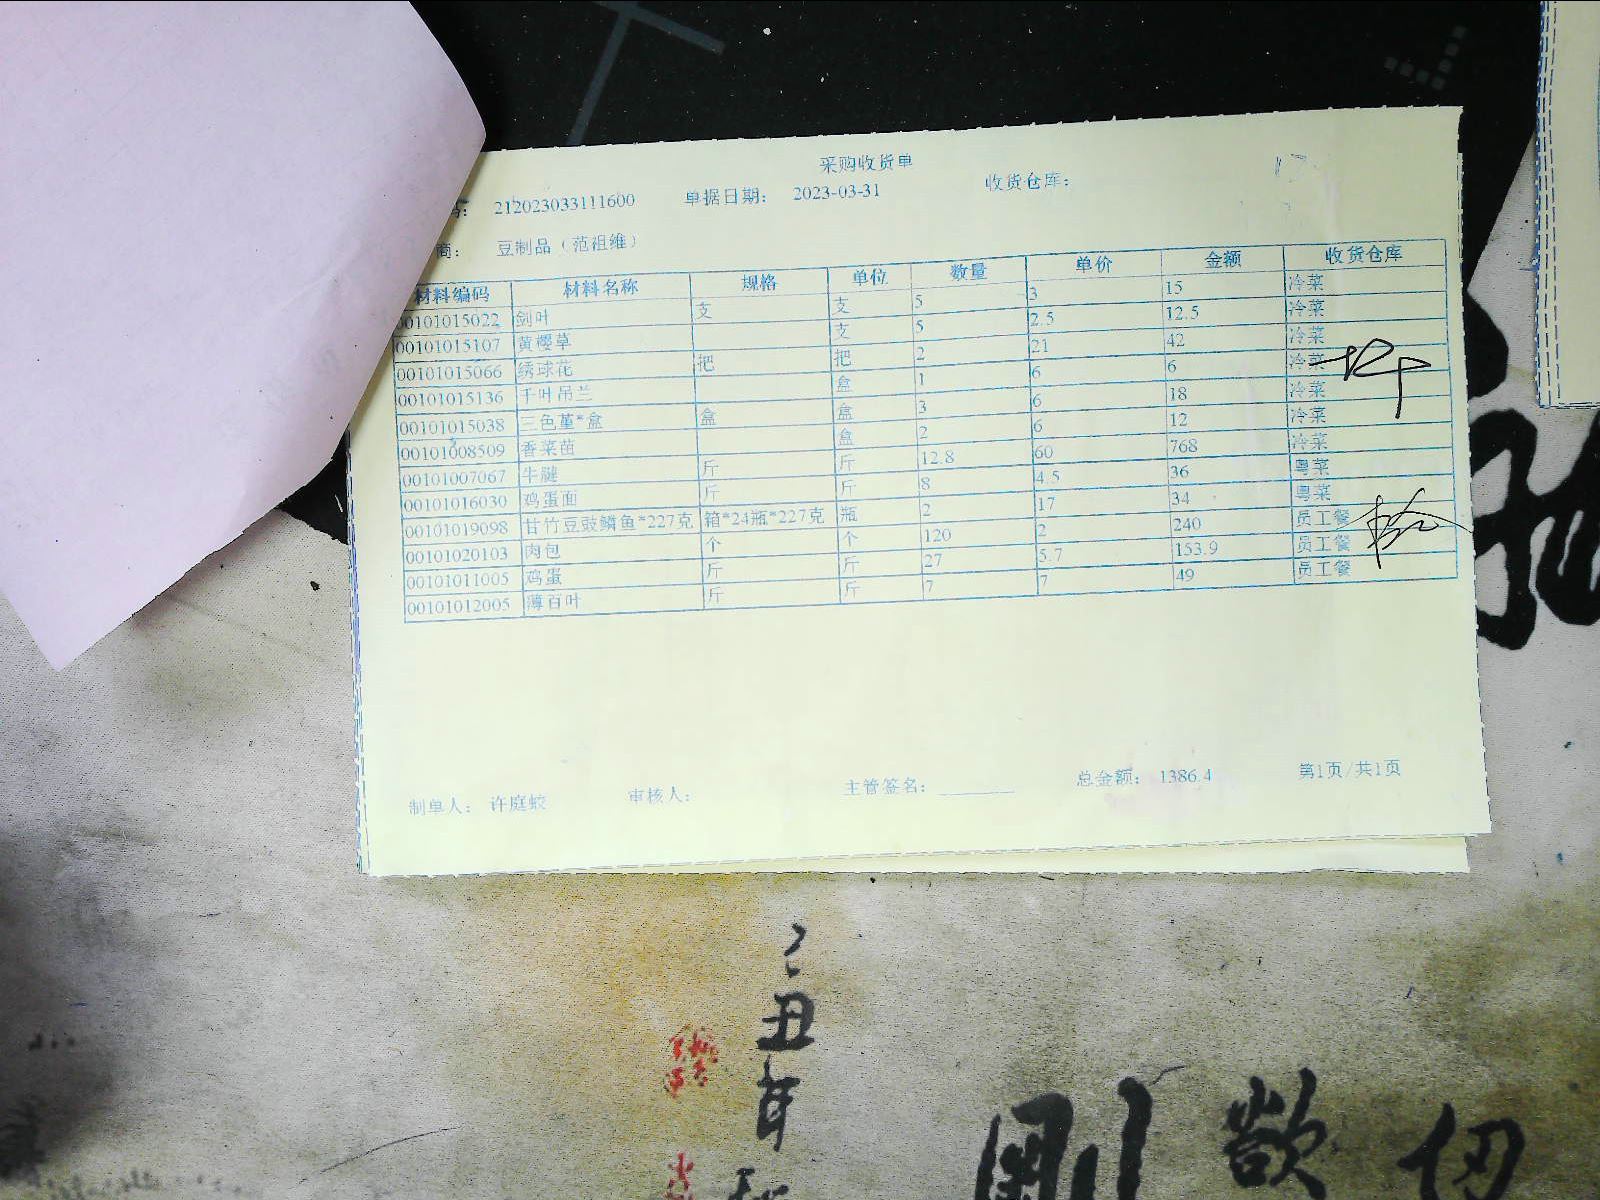 采购收货单
码： 212023033111600 单据日期： 2023-03-31 收货仓库：
商： 豆制品（范祖维）
材料编码 材料名称 规格 单位 数量 单价 金额 收货仓库
00101015022 剑叶 支 支 5 3 15 冷菜
00101015107 黄樱草 支 5 2.5 12.5 冷菜
00101015066 绣球花 把 把 2 21 42 冷菜
00101015136 千叶吊兰 盒 1 6 6 冷菜
00101015038 三色堇*盒 盒 盒 3 6 18 冷菜
00101008509 香菜苗 盒 2 6 12 冷菜
00101007067 牛腱 斤 斤 12.8 60 768 冷菜
00101016030 鸡蛋面 斤 斤 8 4.5 36 粤菜
00101019098 甘竹豆豉鳞鱼*227克 箱*24瓶*227克 瓶 2 17 34 粤菜
00101020103 肉包 个 个 120 2 240 员工餐
00101011005 鸡蛋 斤 斤 27 5.7 153.9 员工餐
00101012005 薄百叶 斤 斤 7 7 49 员工餐
制单人： 许庭蛟 审核人： 主管签名： 总金额： 1386.4 第1页/共1页
乙丑年
欲
切